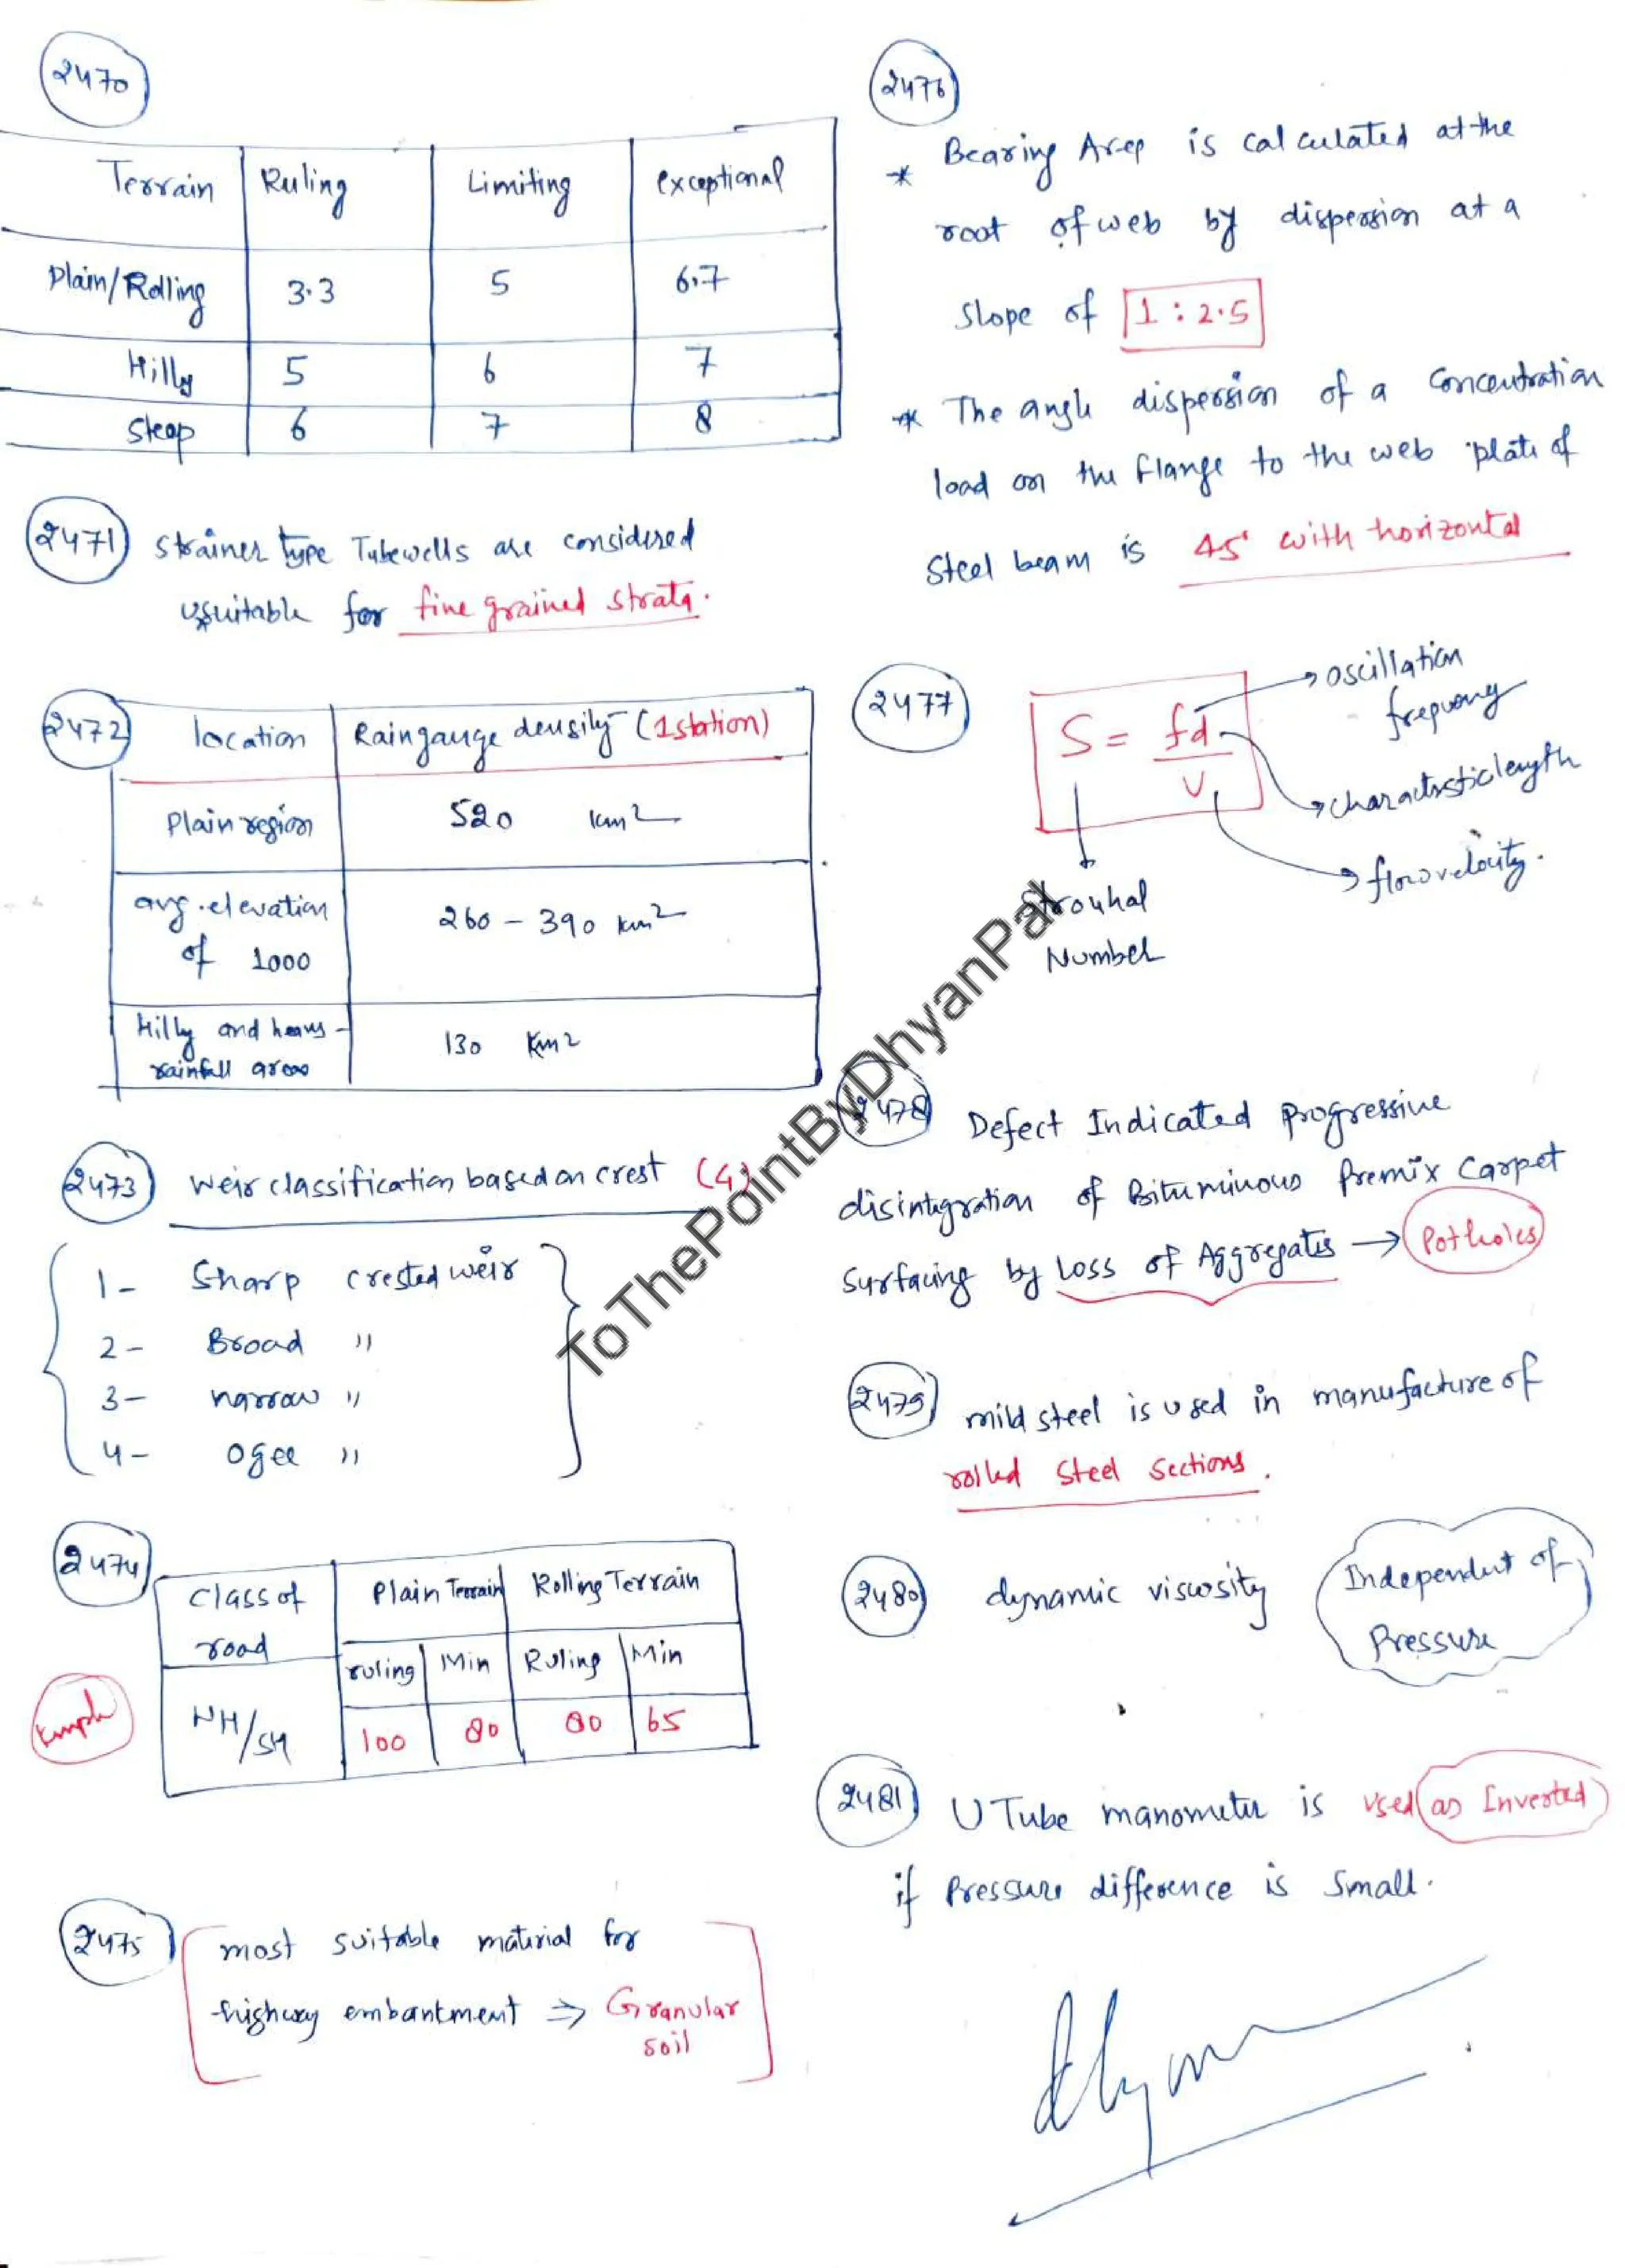 2470
Terrain Ruling Limiting exceptional
Plain/Rolling 3.3 5 6.7
Hilly 5 6 7
Steep 6 7 8
2471 Strainer type Tubewells are considered
unsuitable for fine grained strata.
2472 location Raingauge density (1 station)
Plain region 520 km2
avg. elevation
of 1000 260 - 390 km2
Hilly and heavy
rainfall areas 130 Km2
2473 Weir classification based on crest (4)
1- Sharp crested weir
2- Broad "
3- narrow "
4- Ogee "
2474
Class of
road Plain Terrain Rolling Terrain
ruling Min Ruling Min
kmph NH/SH 100 80 80 65
2475 most suitable material for
highway embankment ⇒ Granular
soil
2476
* Bearing Area is calculated at the
root of web by dispersion at a
Slope of 1 : 2.5
* The angle dispersion of a Concentration
load on the flange to the web plate of
Steel beam is 45° with horizontal
2477 S = fd/V
oscillation
frequency
characterstic length
flow velocity.
Strouhal
Number
2478 Defect Indicated progressive
disintegration of Bituminous Premix Carpet
Surfacing by Loss of Aggregates → Potholes
2479 mild steel is used in manufacture of
rolled steel sections.
2480 dynamic viscosity Independent of
Pressure
2481 U Tube manometer is used as Inverted
if Pressure difference is small.
Dhyan
ToThePointByDhyanPal